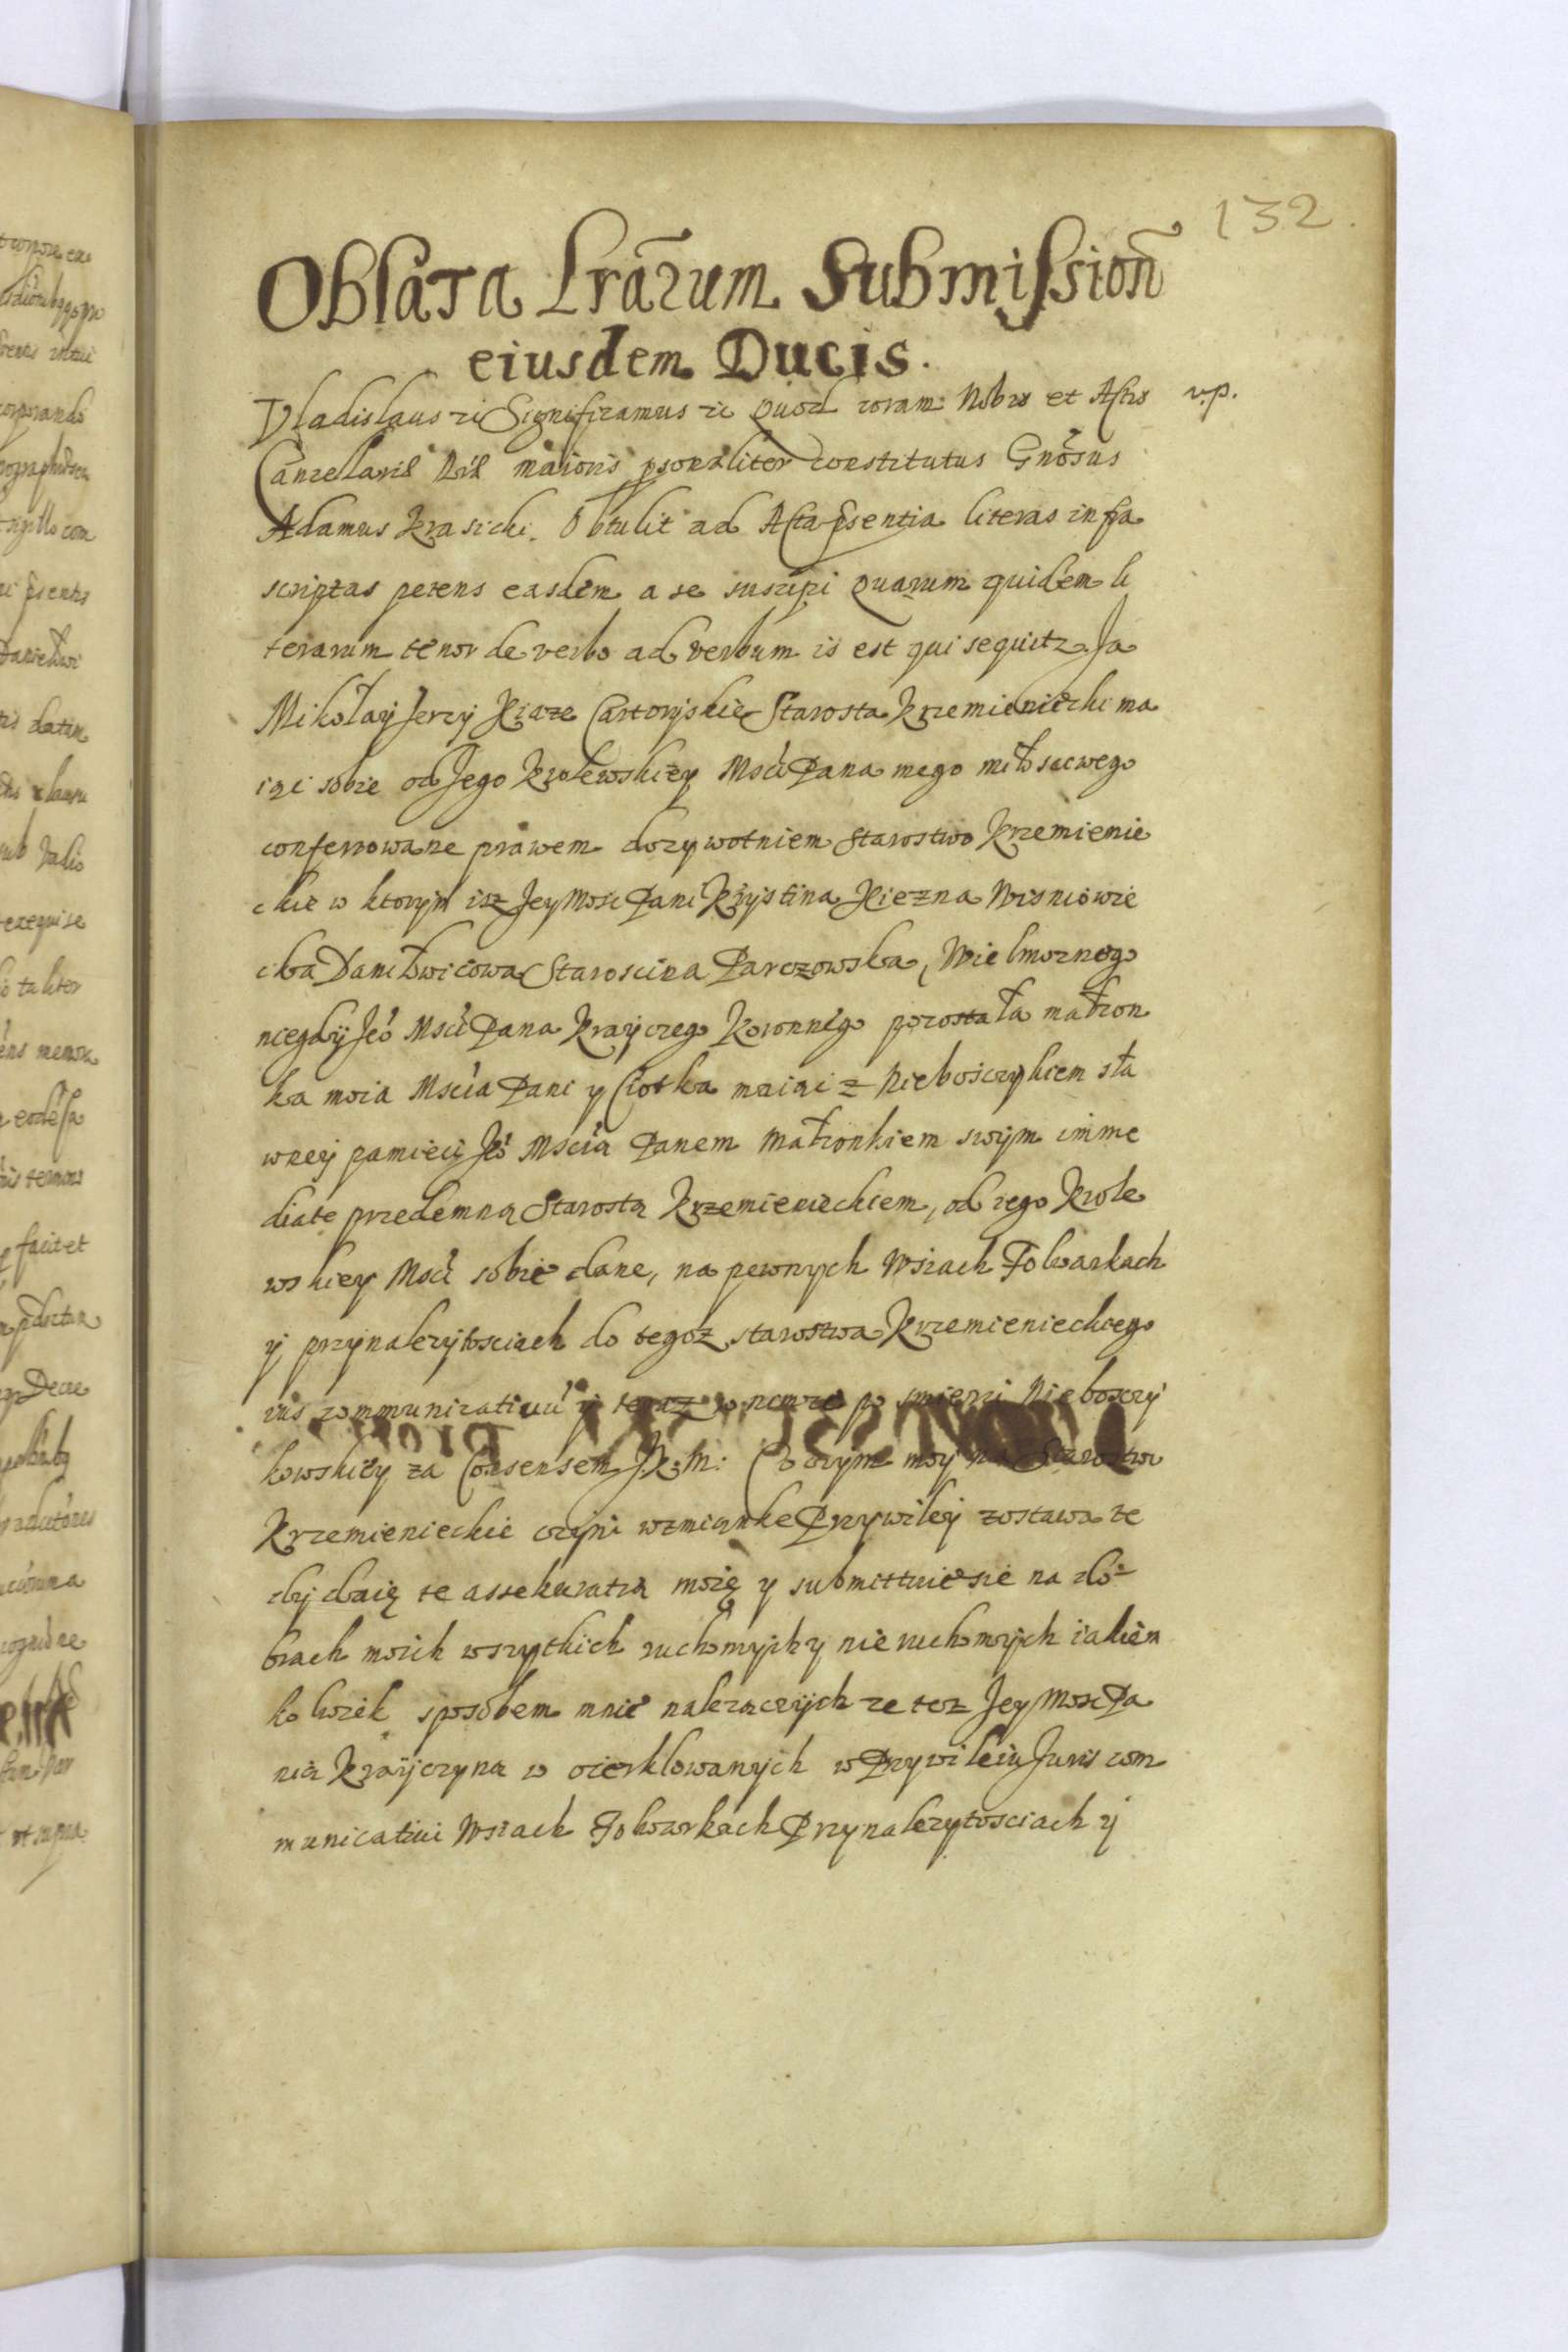 132.
Oblata Lrarum Submission
eiusdem Ducis.
Vladislaus ic Significamus ic Quod coram Nobis et Actis v.p.
Cancellariæ Rñi maioris psonaliter constitutus Gnosus
Adamus Krasicki. Obtulit ad Acta psentia literas infra
scriptas petens easdem a se suscipi Quarum quidem li
terarum tenor de verbo ad verbum is est qui sequitz. Ja
Mikołaÿ Jerzy Xiąze Czartoryskie Starosta Krzemieniecki ma
iąc sobie od Jego Krolewskieÿ Msci Pana mego miłosciwego
conferowane prawem dozywotniem Starostwo Krzemienie
ckie w ktorym isz Jey Mosc Pani Kristina Xiezna Wisniowie
cka Daniłowicowa Staroscina Parczowska, Wielmoznego
niegdÿ Jeo Msci Pana Kraÿczego Koronnego pozostała małzon
ka moia Mscia Pani y Ciotka maiąc z Nieboszczykiem sła
wneÿ pamieci Jeo Mscia Panem Małzonkiem swÿm imme
diate przedemną Starostą Krzemienieckiem, od iego Krole
wskieÿ Msci sobie dane, na pewnych Wsiach Folwarkach
ÿ przÿnalezÿtosciach do tegoz starostwa Krzemienieckiego
ius communicativũ ÿ teraz po smierci Nieboszczÿ
kowskiey za Consensem J.K.M: O czym moy na Starostwo
Krzemienieckie czÿni wzmianke Przywileÿ zostawa te
dÿ daię te assekuratią moię y submittuie sie na do-
brach moich wszytkich ruchomych y nieruchomÿch iakiem
kolwiek sposobem mnie nalezacÿch ze tez Jey Mosc Pa
nia Kraÿczyna w ocerklowanych w Przywileiu Juris com
municativi Wsiach Folwarkach Przynalezytosciach ÿ